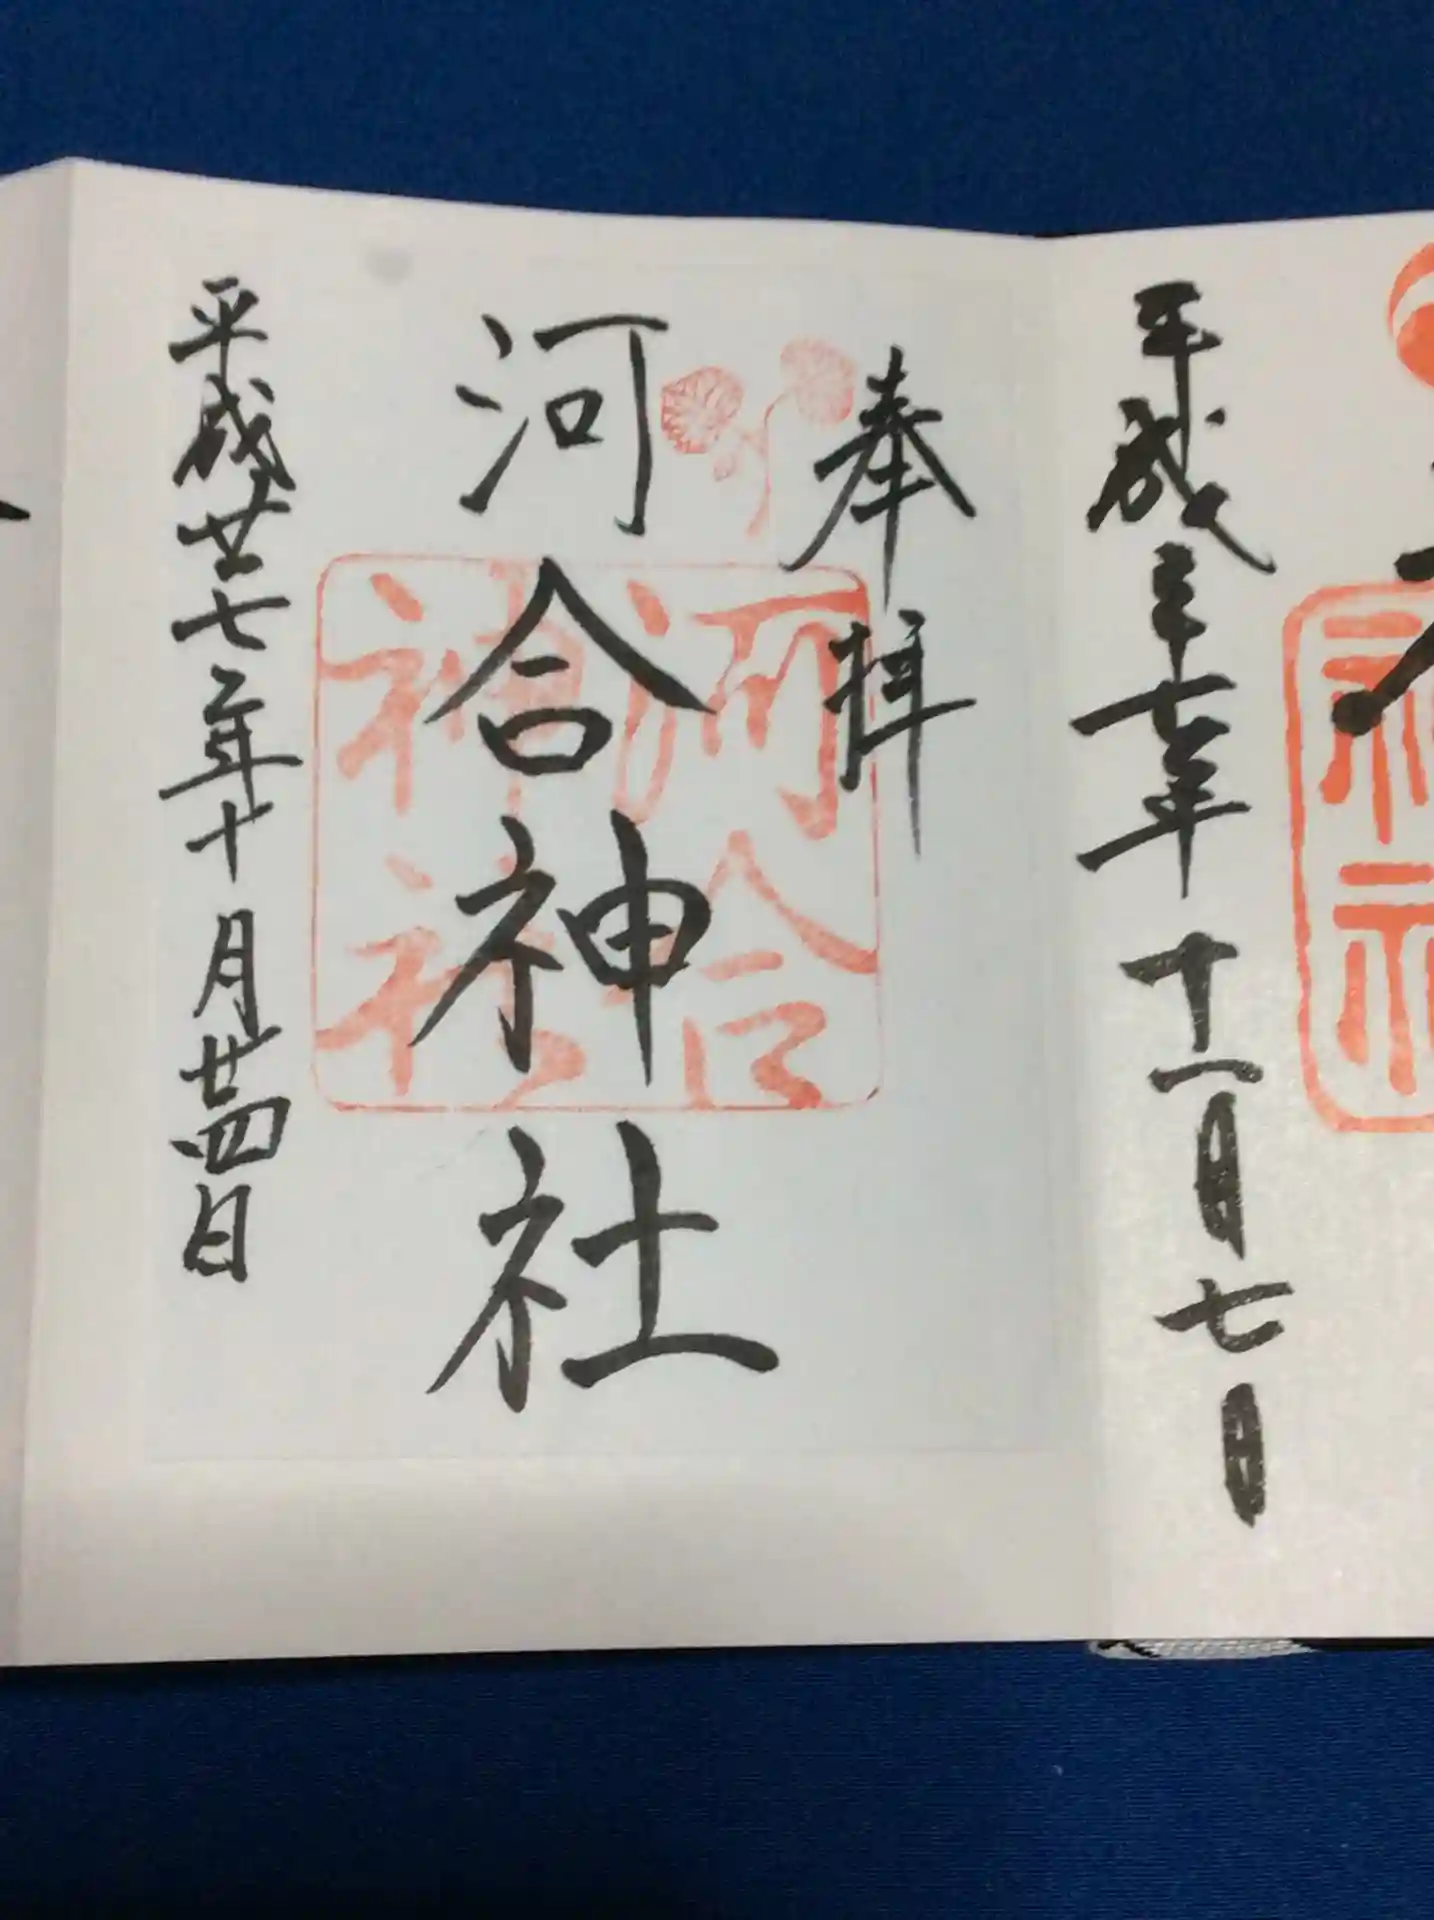 平成二十七年十一月七日
奉拝
河合神社
河合
神社
平成廿七年十月廿四日